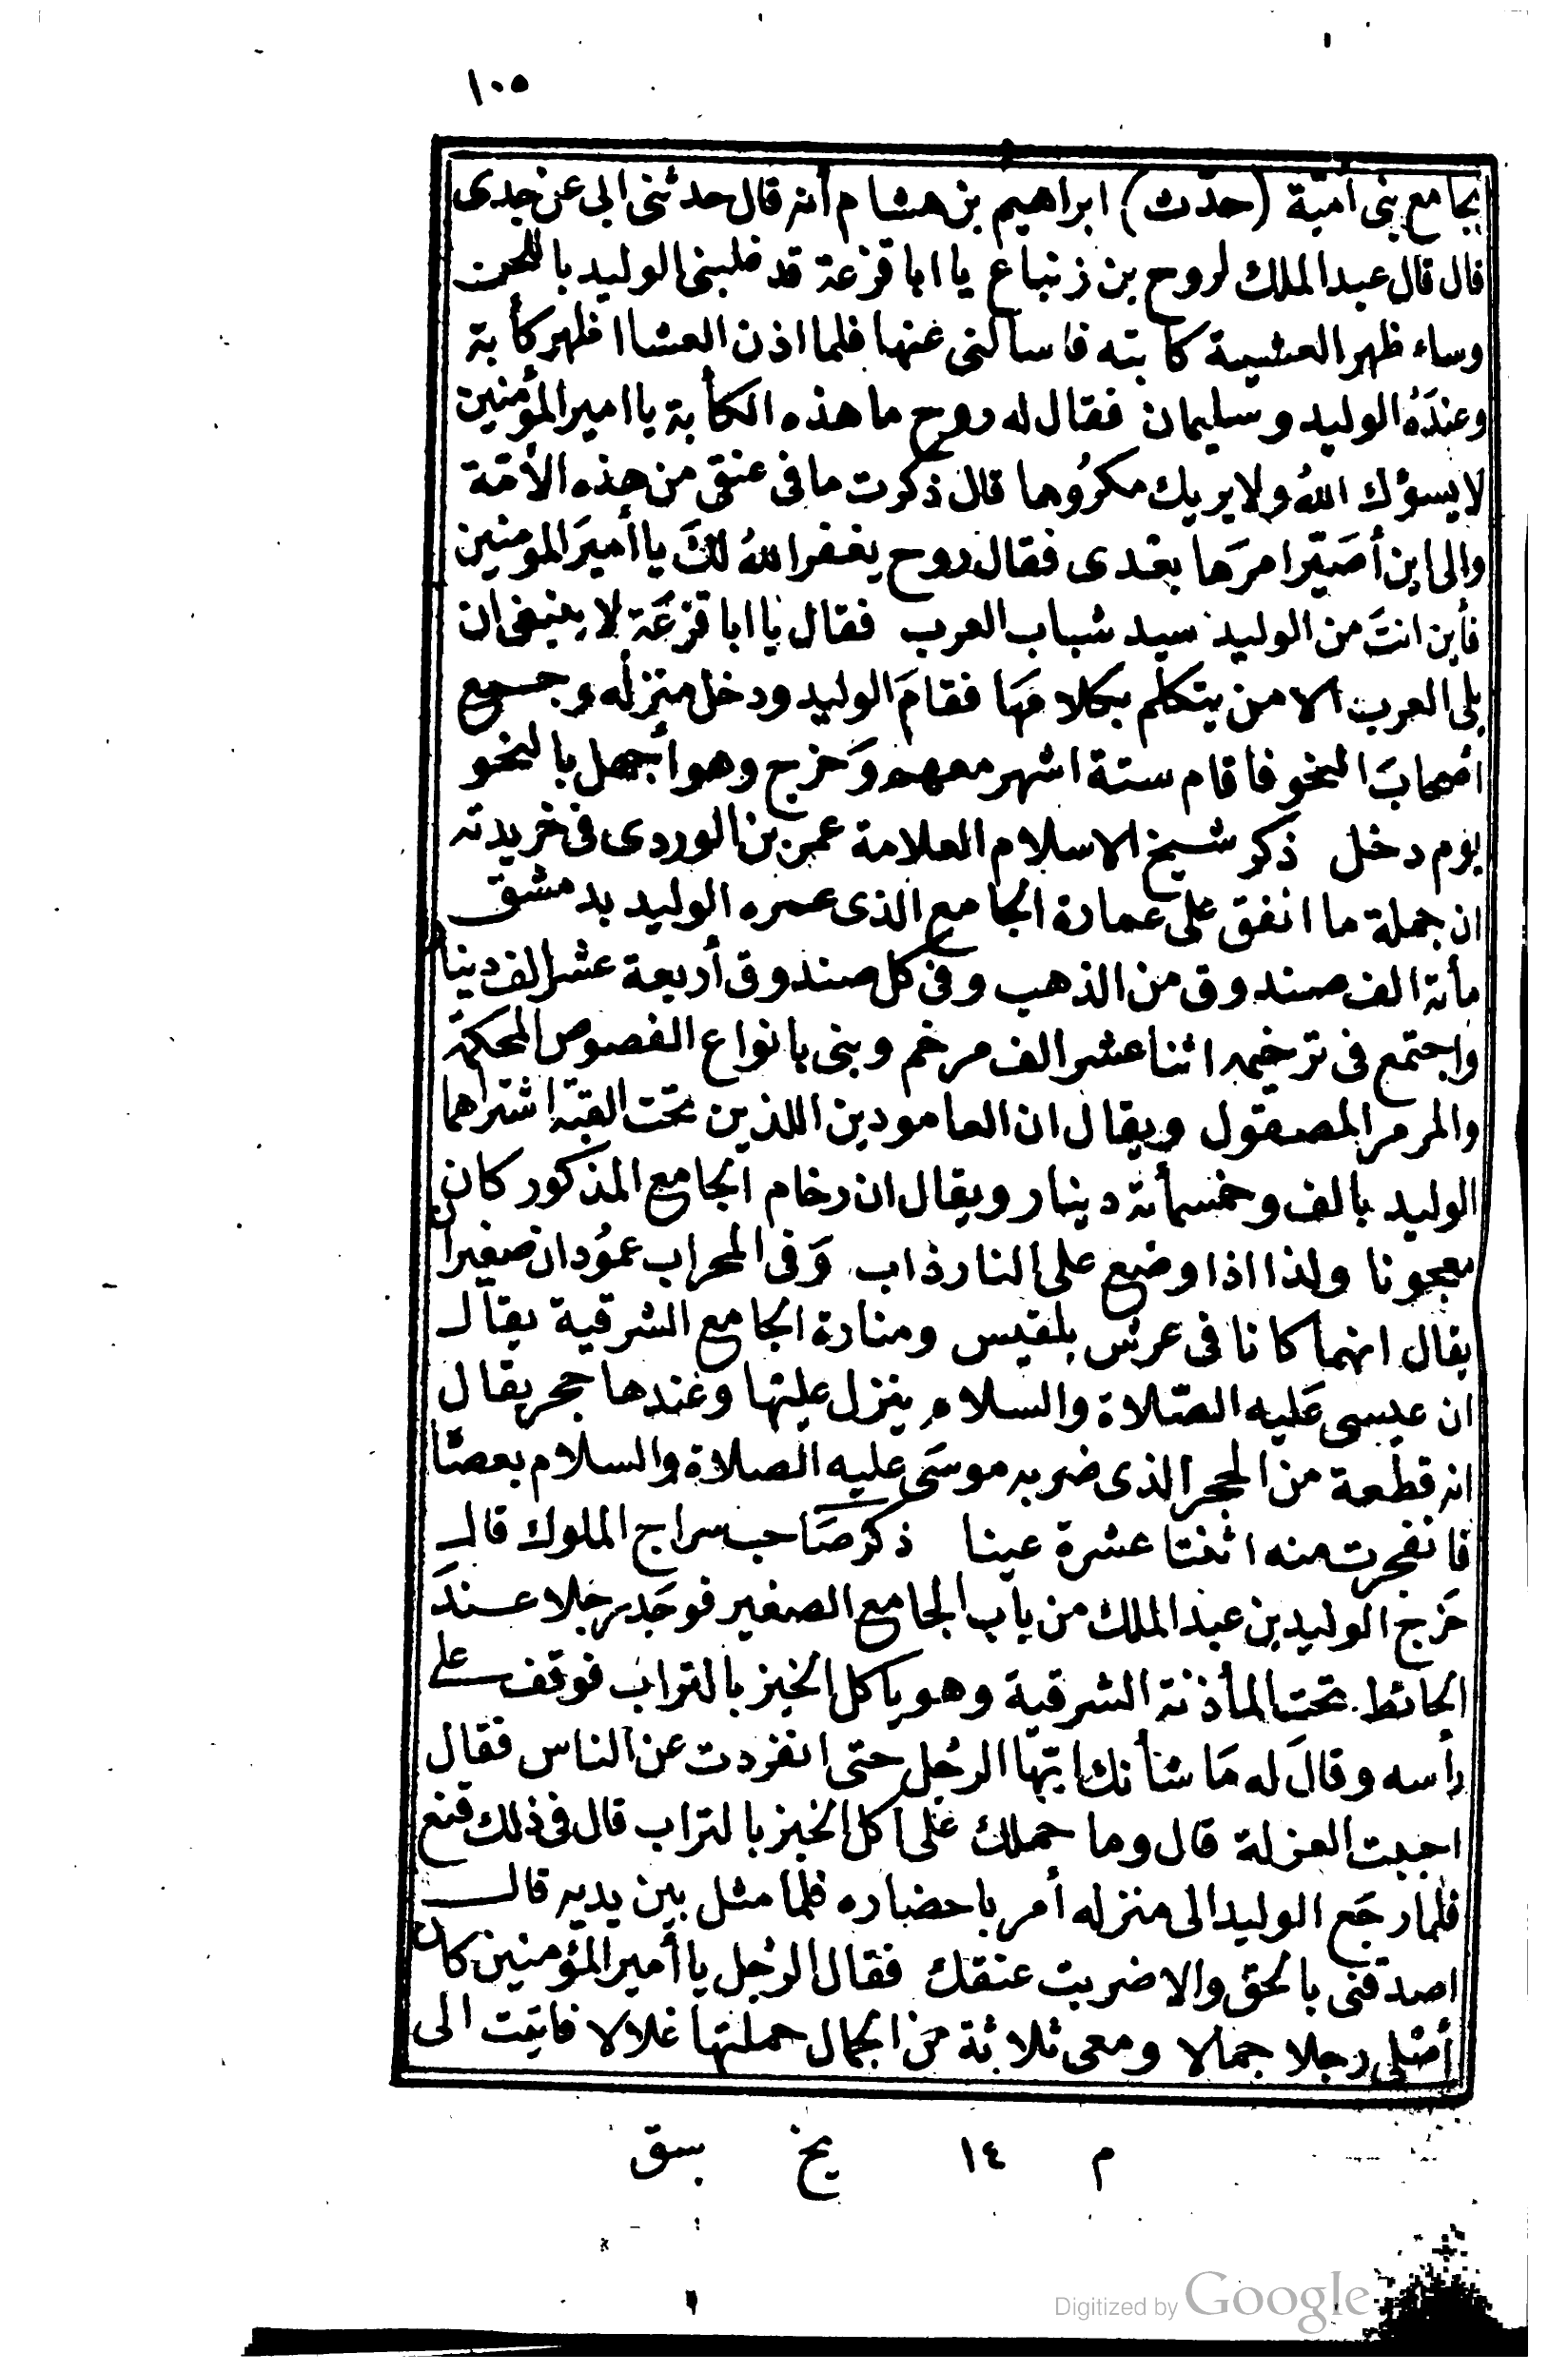 ١٠٥
بجامع بنى أميّة (حدّث) ابراهيم بن هشام أنه قال حدثنى ابى عن جدى
قال قال عبد الملك لروح بن زنباع يا ابا قزعة قد غلبنى الوليد باللحن
وساء ظهر العشية كابته فاسالنى عنها فلما اذن العشا اظهر كأبة
وعندَهُ الوليد وسليمان فقال له روح ما هذه الكأبة يا امير المؤمنين
لا يسؤك اللهُ ولا يريك مكرُوها قال ذكرت ما فى عنقى من هذه الأمّة
والى اين أصَيّر امرَها بعدى فقال روح يغفر اللهُ لكَ يا أميرَ المومنين
فأين انتَ من الوليد سيد شباب العرب فقال يا ابا قزعَة لا ينبغى ان
يلى العرب الا من يتكلم بكلامهَا فقامَ الوليد ودخل منزله وجمع
أصحابَ النحو فاقام ستة اشهر معهم وَخرج وهو أجهل بالنحو
يوم دخل ذكر شيخ الاسلام العلامة عمر بن الوردى فى خريدته
ان جملة ما انفق على عمارة الجامع الذى عمره الوليد بدمشق
مأنة الف صندوق من الذهب وفى كل صندوق أربعة عشر الف دينار
واجتمع فى ترخيمه اثنا عشر الف مرخم وبنى بانواع الفصوص المحكمة
والمرمر المصقول ويقال ان العامودين اللذين تحت القبّة اشتراهما
الوليد بالف وخمسمأنة دينار ويقال ان رخام الجامع المذكور كان
معجونا ولذا اذا وضع على النار ذاب وَفى المحراب عمُودان صغيران
يقال انهما كانا فى عرش بلقيس ومنارة الجامع الشرقية يقال
ان عيسى عَليه الصّلاة والسلام ينزل عليها وعندها حجر يقال
انه قطعة من الحجر الذى ضربه موسَى عليه الصلاة والسلام بعصَا
فانفجرت منه اثنتا عشرة عينا ذكر صَاحب سراج الملوك قال
خَرج الوليد بن عبد الملك من باب الجامع الصغير فوجَد رجلا عندَ
الحائط تحت المأذنة الشرقية وهو ياكل الخبز بالتراب فوقف على
رأسه وقالَ له مَا شأنك ايّها الرجُل حتى انفردت عن الناس فقال
احببت العزلة قال وما حملك على أكل الخبز بالتراب قال فى ذلك قنع
فلما رجَع الوليد الى منزله أمر باحضاره فلما مثل بين يديه قال
اصدقنى بالحق والا ضربت عنقك فقال الرجُل يا أمير المؤمنين كان
أصْلى رجلا جمالا ومعى ثلاثة مَن الجمال حملتها غلالا فاتيت الى
م ١٤ يخ بسق
Digitized by Google